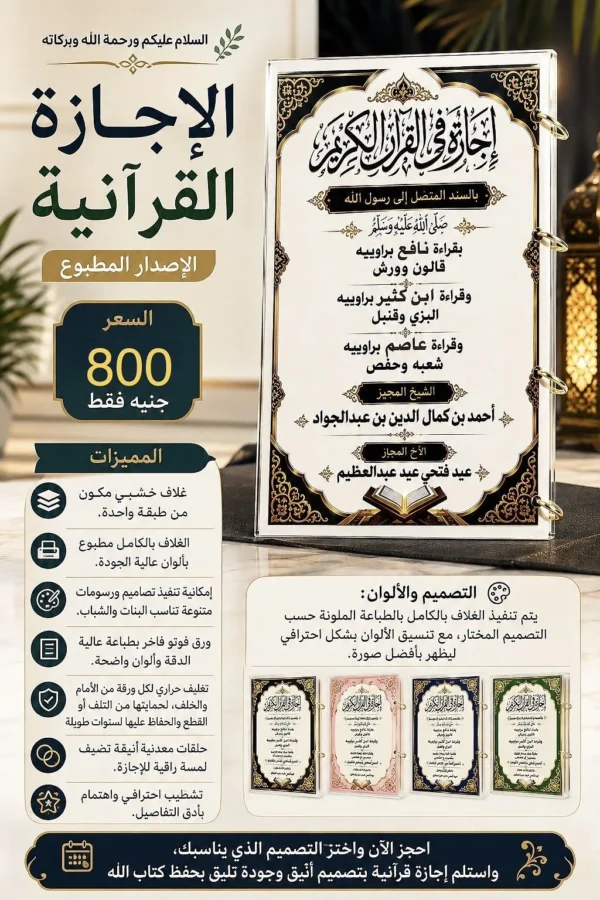 السلام عليكم ورحمة الله وبركاته
الإجازة
القرآنية
الإصدار المطبوع
السعر
800
جنيه فقط
المميزات
غلاف خشبي مكون
من طبقة واحدة.
الغلاف بالكامل مطبوع
بألوان عالية الجودة.
إمكانية تنفيذ تصاميم ورسومات
متنوعة تناسب البنات والشباب.
ورق فوتو فاخر بطباعة عالية
الدقة وألوان واضحة.
تغليف حراري لكل ورقة من الأمام
والخلف، لحمايتها من التلف أو
القطع والحفاظ عليها لسنوات طويلة
حلقات معدنية أنيقة تضيف
لمسة راقية للإجازة.
تشطيب احترافي واهتمام
بأدق التفاصيل.
إجازة في القرآن الكريم
بالسند المتصل إلى رسول الله
صلى الله عليه وسلم
بقراءة نافع براوييه
قالون وورش
وقراءة ابن كثير براوييه
البزي وقنبل
وقراءة عاصم براوييه
شعبه وحفص
الشيخ المجيز
أحمد بن كمال الدين بن عبدالجواد
الأخ المجاز
عيد فتحي عيد عبدالعظيم
التصميم والألوان:
يتم تنفيذ الغلاف بالكامل بالطباعة الملونة حسب
التصميم المختار، مع تنسيق الألوان بشكل احترافي
ليظهر بأفضل صورة.
إجازة في القرآن الكريم
إجازة في القرآن الكريم
إجازة في القرآن الكريم
إجازة في القرآن الكريم
احجز الآن واختر التصميم الذي يناسبك،
واستلم إجازة قرآنية بتصميم أنيق وجودة تليق بحفظ كتاب الله